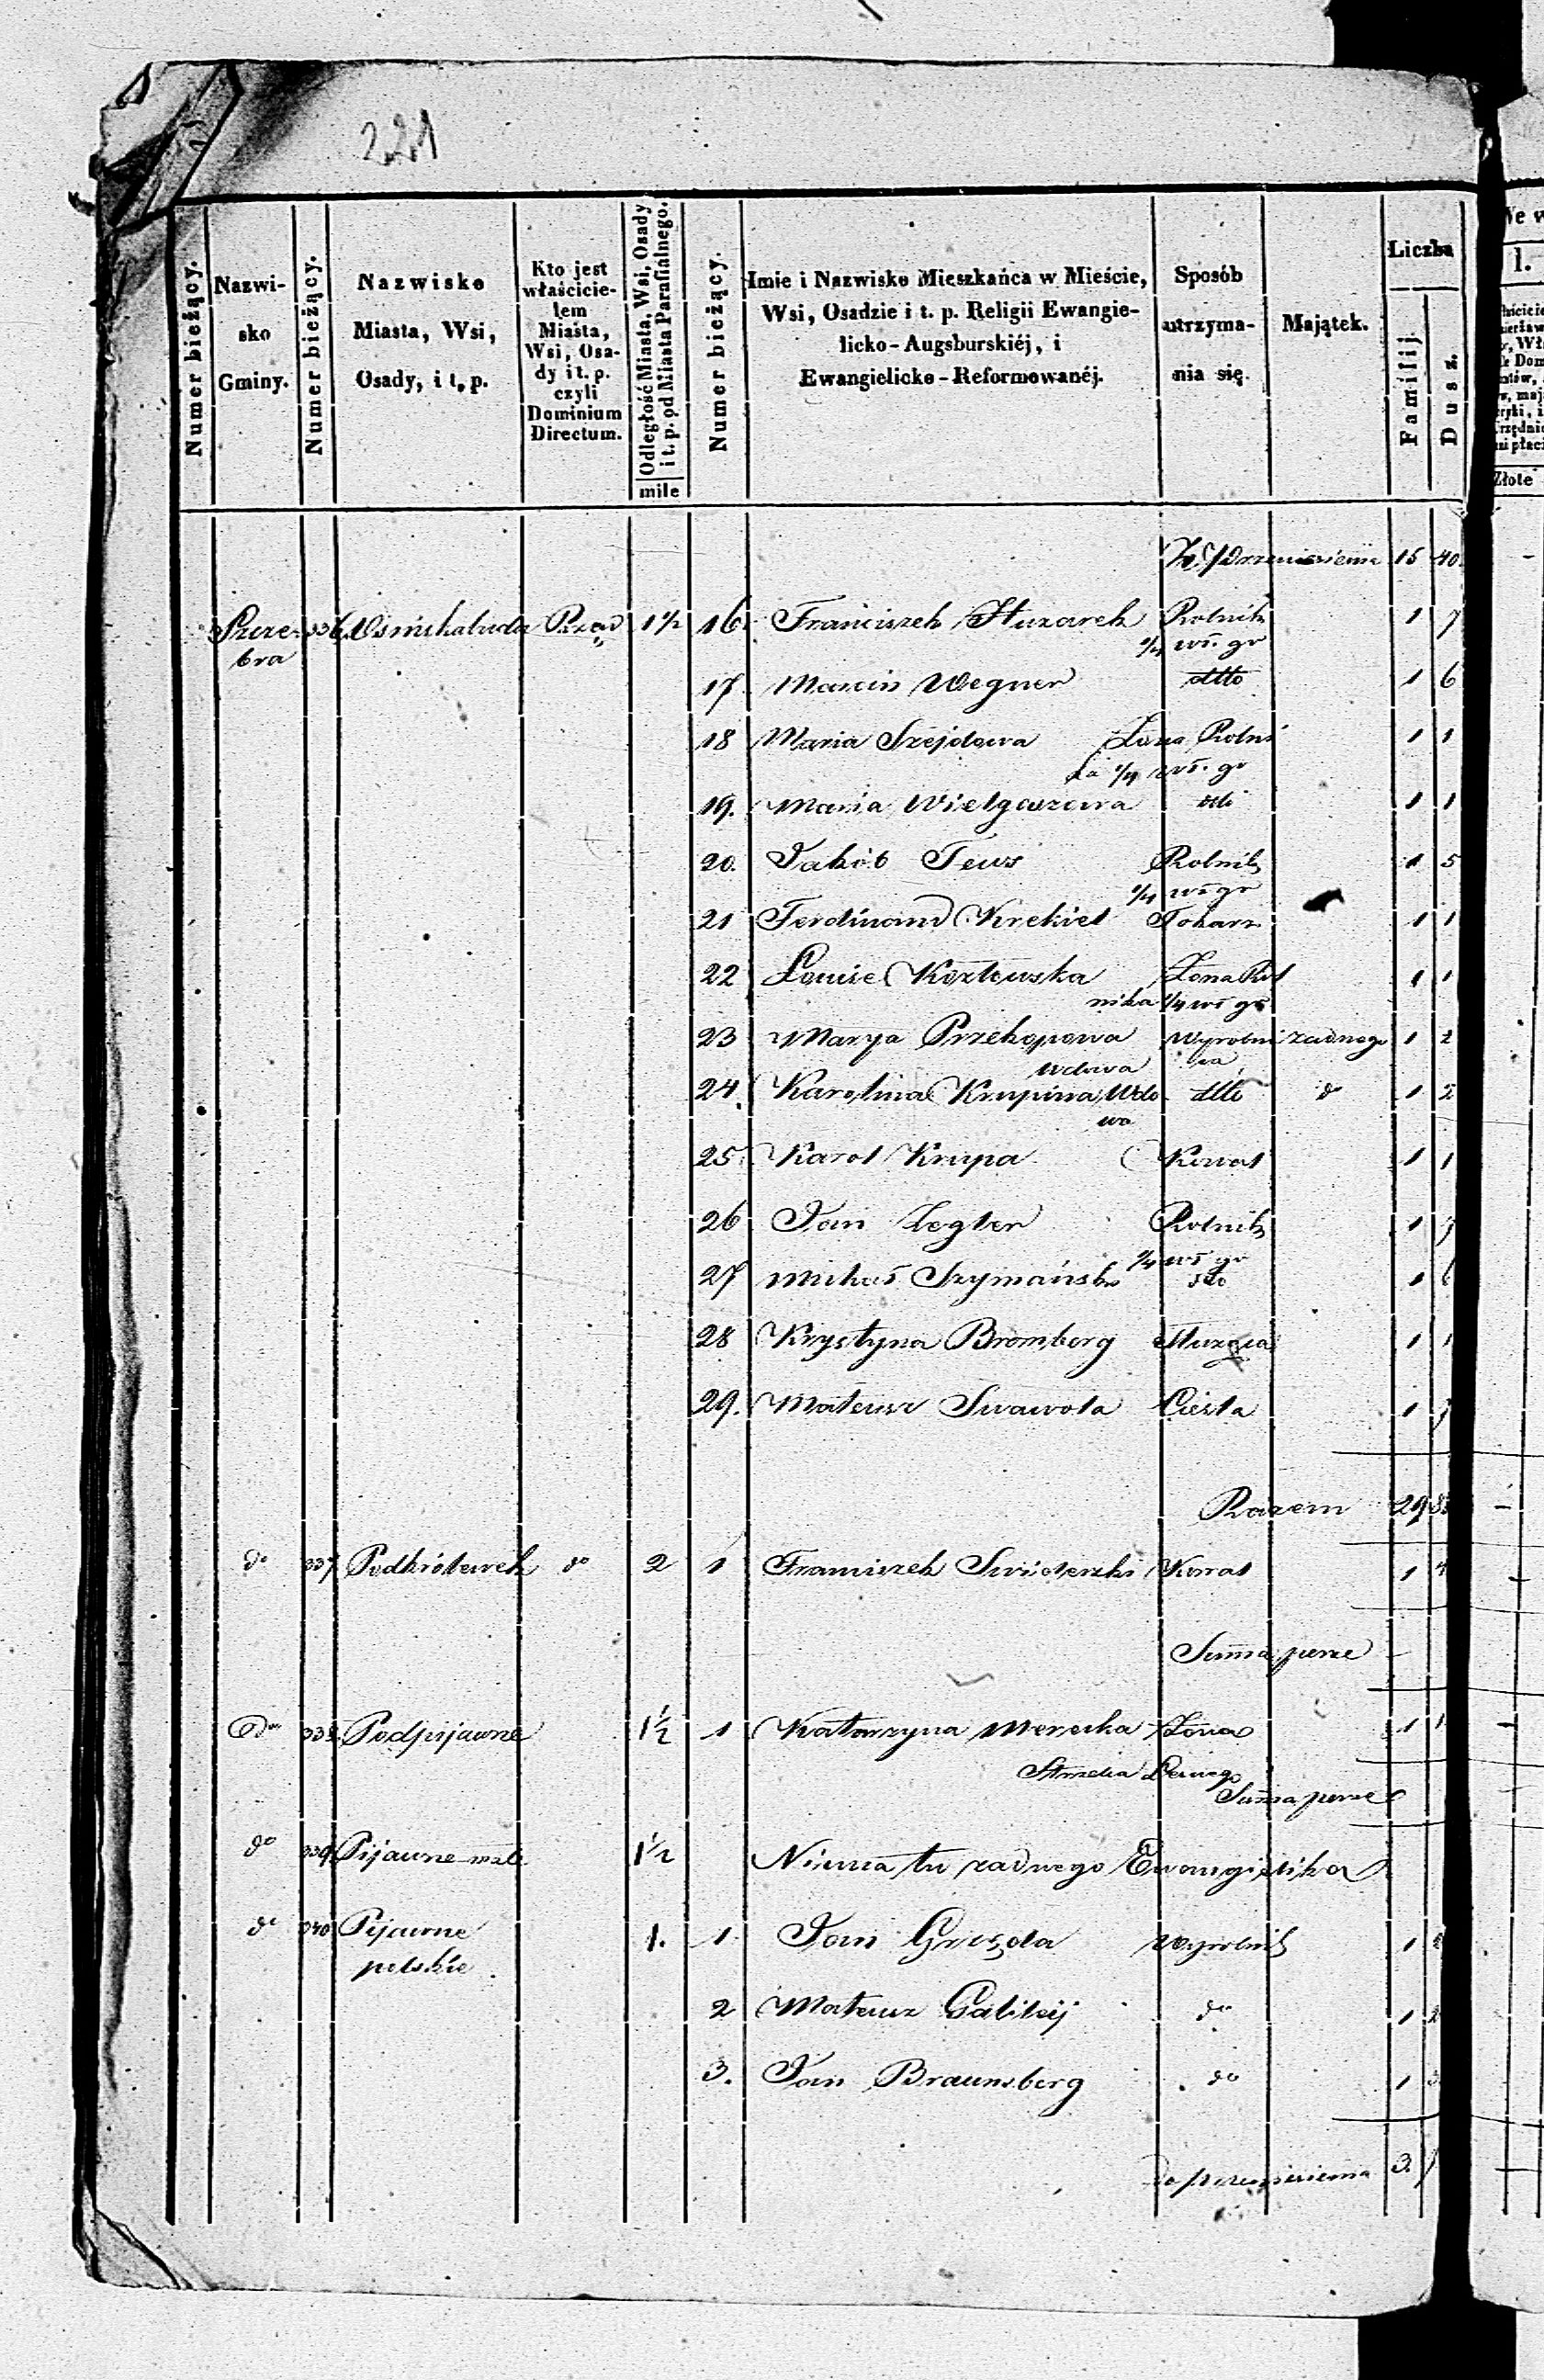 221
Numer bieżący.
Nazwisko Gminy.
Numer bieżący.
Nazwisko Miasta, Wsi, Osady, i t. p.
Kto jest właścicielem Miasta, Wsi, Osady i t. p. czyli Dominium Directum.
Odległość Miasta, Wsi, Osady i t. p. od Miasta Parafialnego.
mile
Numer bieżący.
Imie i Nazwisko Mieszkańca w Mieście, Wsi, Osadzie i t. p. Religii Ewangielicko-Augsburskiéj, i Ewangielicko-Reformowanéj.
Sposób utrzymania się.
Majątek.
Liczba
Familij.
Dusz.
Z Przeniesienia 15 40
Szczebra 336 Osinskabuda Rząd 1 1/2 16. Franciszek Huzarek Rolnik 1 7
1/4 wł. gr
17. Marcin Wegner dtto 1 6
18 Maria Szejdowa Żona Rolni 1 1
ka 1/4 wł. gr
19. Maria Wielgoszowa dtto 1 1
20. Jakób Tews Rolnik 1 5
1/4 wł gr
21 Ferdinand Krekiel Tokarz 1 1
22 Louise Kozłowska Żona Rol 1 1
nika 1/4 wł gr
23 Marya Przekopowa Wyrobni żadnego 1 2
wdowa ca
24. Karolina Krupina Wdo dtto do 1 2
wa
25. Karol Krupa Kowal 1 1
26 Jan Zegler Rolnik 1
1/4 wł gr
27 Michał Szymański dto 1 6
28 Krystyna Bromberg Służąca 1 1
29. Mateusz Swawola Cieśla 1
Razem 29
do 337 Podkrólewek do 2 1 Franciszek Swiderski Kowal 1 4
Summa perse
do 338 Podpijawne 1 1/2 1 Katarzyna Merecka Żona 1 1
Strzelca Leśnego
Summa perse
do 339 Pijawne małe 1 1/2 Niema tu żadnego Ewangielika
do 340 Pijawne 1. 1 Jan Gruszda Wyrobnik 1
polskie
2 Mateusz Galilej do 1 2
3. Jan Braunsberg do 1 3
do przeniesienia 3.